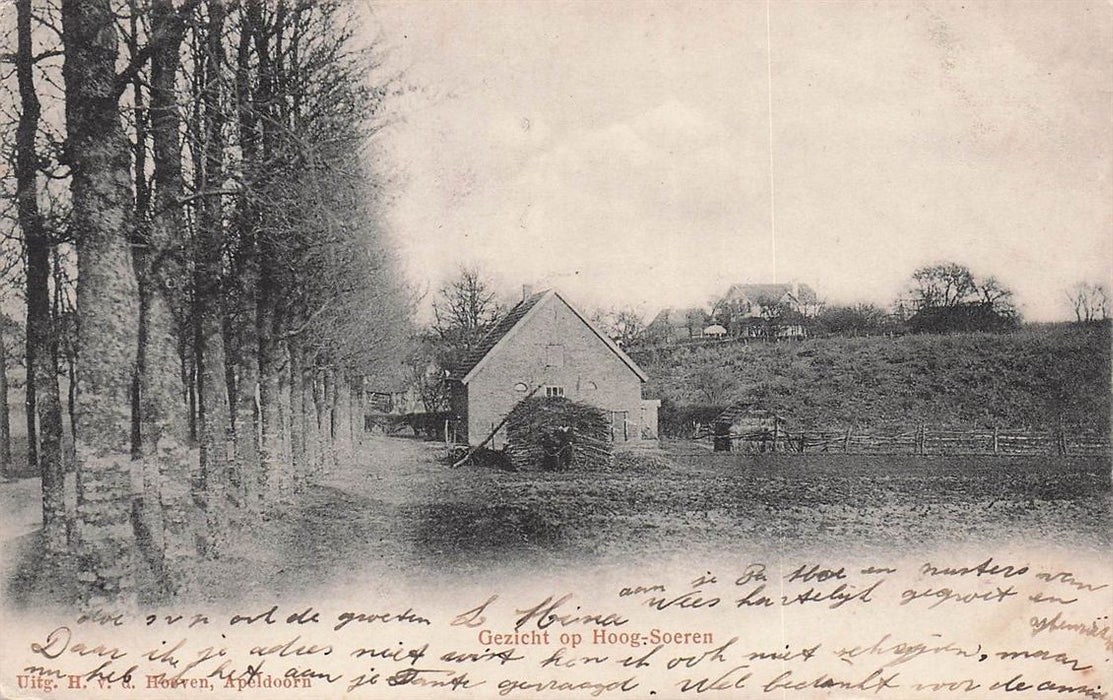 doe s.v.p ook de groeten
aan je Pa Moe en zusters van
L Hina Wees hartelijk gegroet en
Gezicht op Hoog-Soeren
Daar ik je adres niet wist kon ik ook niet schrijven, maar
nu heb ik het aan je Tante gevraagd. Wel bedankt voor de
Uitg. H. v. d. Hoeven, Apeldoorn